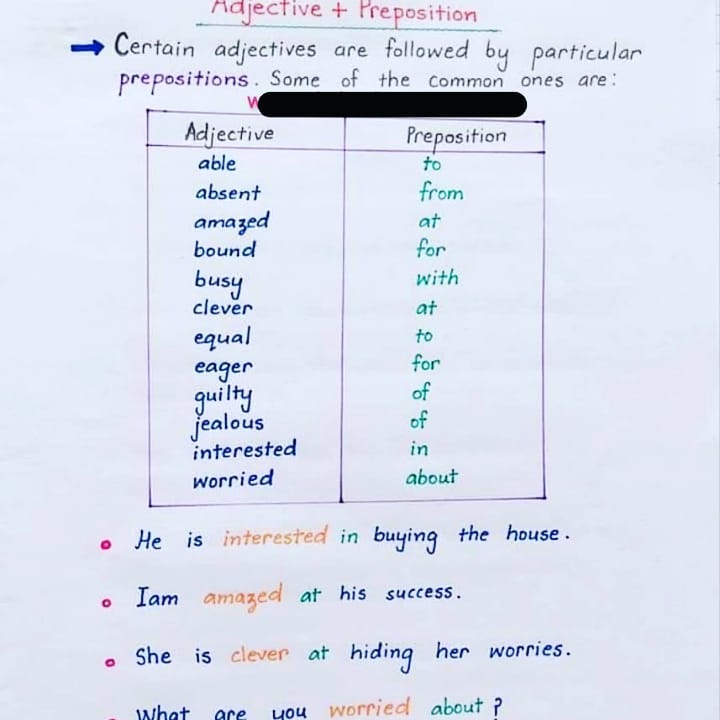 Adjective + Preposition
→ Certain adjectives are followed by particular
prepositions. Some of the common ones are:
Adjective Preposition
able to
absent from
amazed at
bound for
busy with
clever at
equal to
eager for
guilty of
jealous of
interested in
worried about
He is interested in buying the house.
Iam amazed at his success.
She is clever at hiding her worries.
What are you worried about?